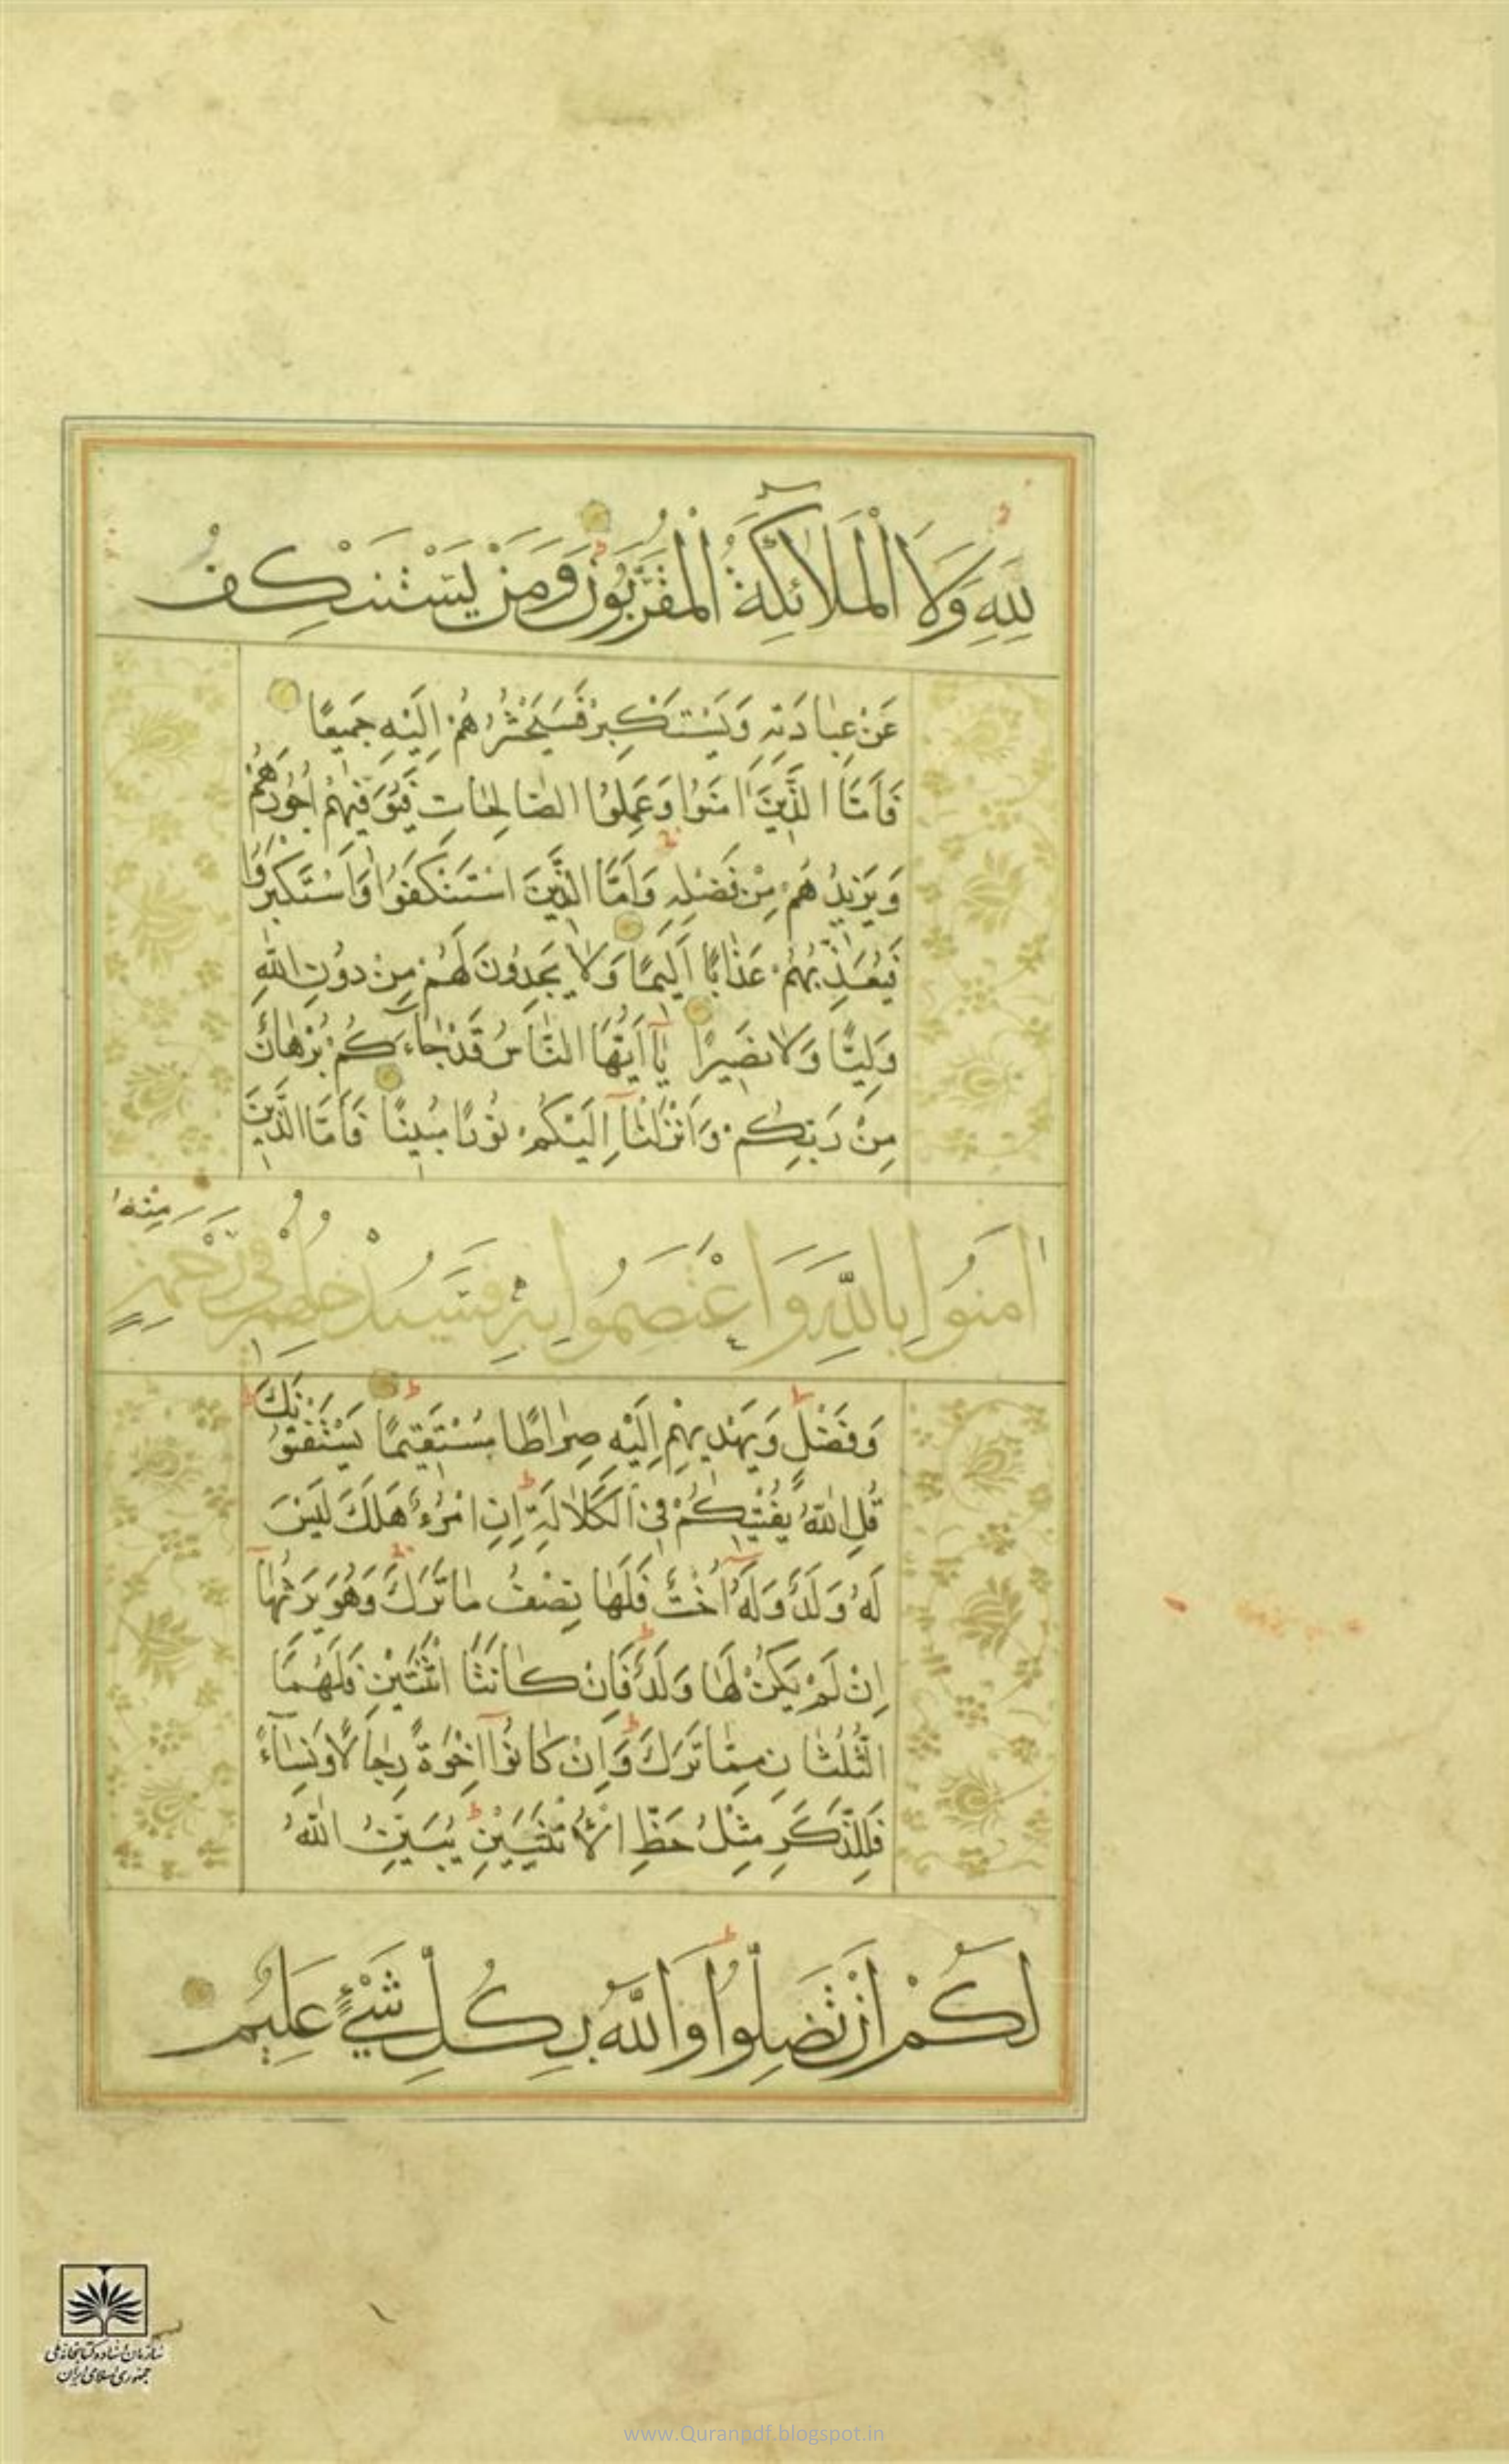 لِلّٰهِ وَلَا الْمَلَائِكَةُ الْمُقَرَّبُونَ وَمَنْ يَسْتَنْكِفْ
عَنْ عِبَادَتِهِ وَيَسْتَكْبِرْ فَسَيَحْشُرُهُمْ اِلَيْهِ جَمِيعًا
فَاَمَّا الَّذِينَ اٰمَنُوا وَعَمِلُوا الصَّالِحَاتِ فَيُوَفِّيهِمْ اُجُورَهُمْ
وَيَزِيدُهُمْ مِنْ فَضْلِهِ وَاَمَّا الَّذِينَ اسْتَنْكَفُوا وَاسْتَكْبَرُوا
فَيُعَذِّبُهُمْ عَذَابًا اَلِيمًا وَلَا يَجِدُونَ لَهُمْ مِنْ دُونِ اللّٰهِ
وَلِيًّا وَلَا نَصِيرًا يَا اَيُّهَا النَّاسُ قَدْ جَاءَكُمْ بُرْهَانٌ
مِنْ رَبِّكُمْ وَاَنْزَلْنَا اِلَيْكُمْ نُورًا مُبِينًا فَاَمَّا الَّذِينَ
اٰمَنُوا بِاللّٰهِ وَاعْتَصَمُوا بِهِ فَسَيُدْخِلُهُمْ فِي رَحْمَةٍ مِنْهُ
وَفَضْلٍ وَيَهْدِيهِمْ اِلَيْهِ صِرَاطًا مُسْتَقِيمًا يَسْتَفْتُونَكَ
قُلِ اللّٰهُ يُفْتِيكُمْ فِي الْكَلَالَةِ اِنِ امْرُؤٌ هَلَكَ لَيْسَ
لَهُ وَلَدٌ وَلَهُ اُخْتٌ فَلَهَا نِصْفُ مَا تَرَكَ وَهُوَ يَرِثُهَا
اِنْ لَمْ يَكُنْ لَهَا وَلَدٌ فَاِنْ كَانَتَا اثْنَتَيْنِ فَلَهُمَا
الثُّلُثَانِ مِمَّا تَرَكَ وَاِنْ كَانُوا اِخْوَةً رِجَالًا وَنِسَاءً
فَلِلذَّكَرِ مِثْلُ حَظِّ الْاُنْثَيَيْنِ يُبَيِّنُ اللّٰهُ
لَكُمْ اَنْ تَضِلُّوا وَاللّٰهُ بِكُلِّ شَيْءٍ عَلِيمٌ
سازمان اسناد و کتابخانه ملی
جمهوری اسلامی ایران
www.Quranpdf.blogspot.in